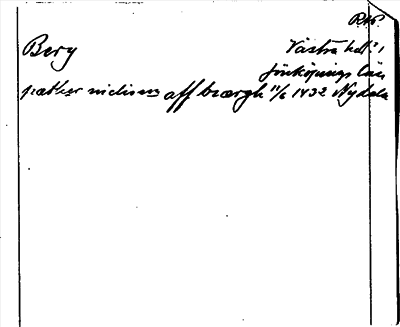 Berg
Västra hd.
Jönköpings län
pæther niclisson aff bærgh 11/6 1432 Nydala